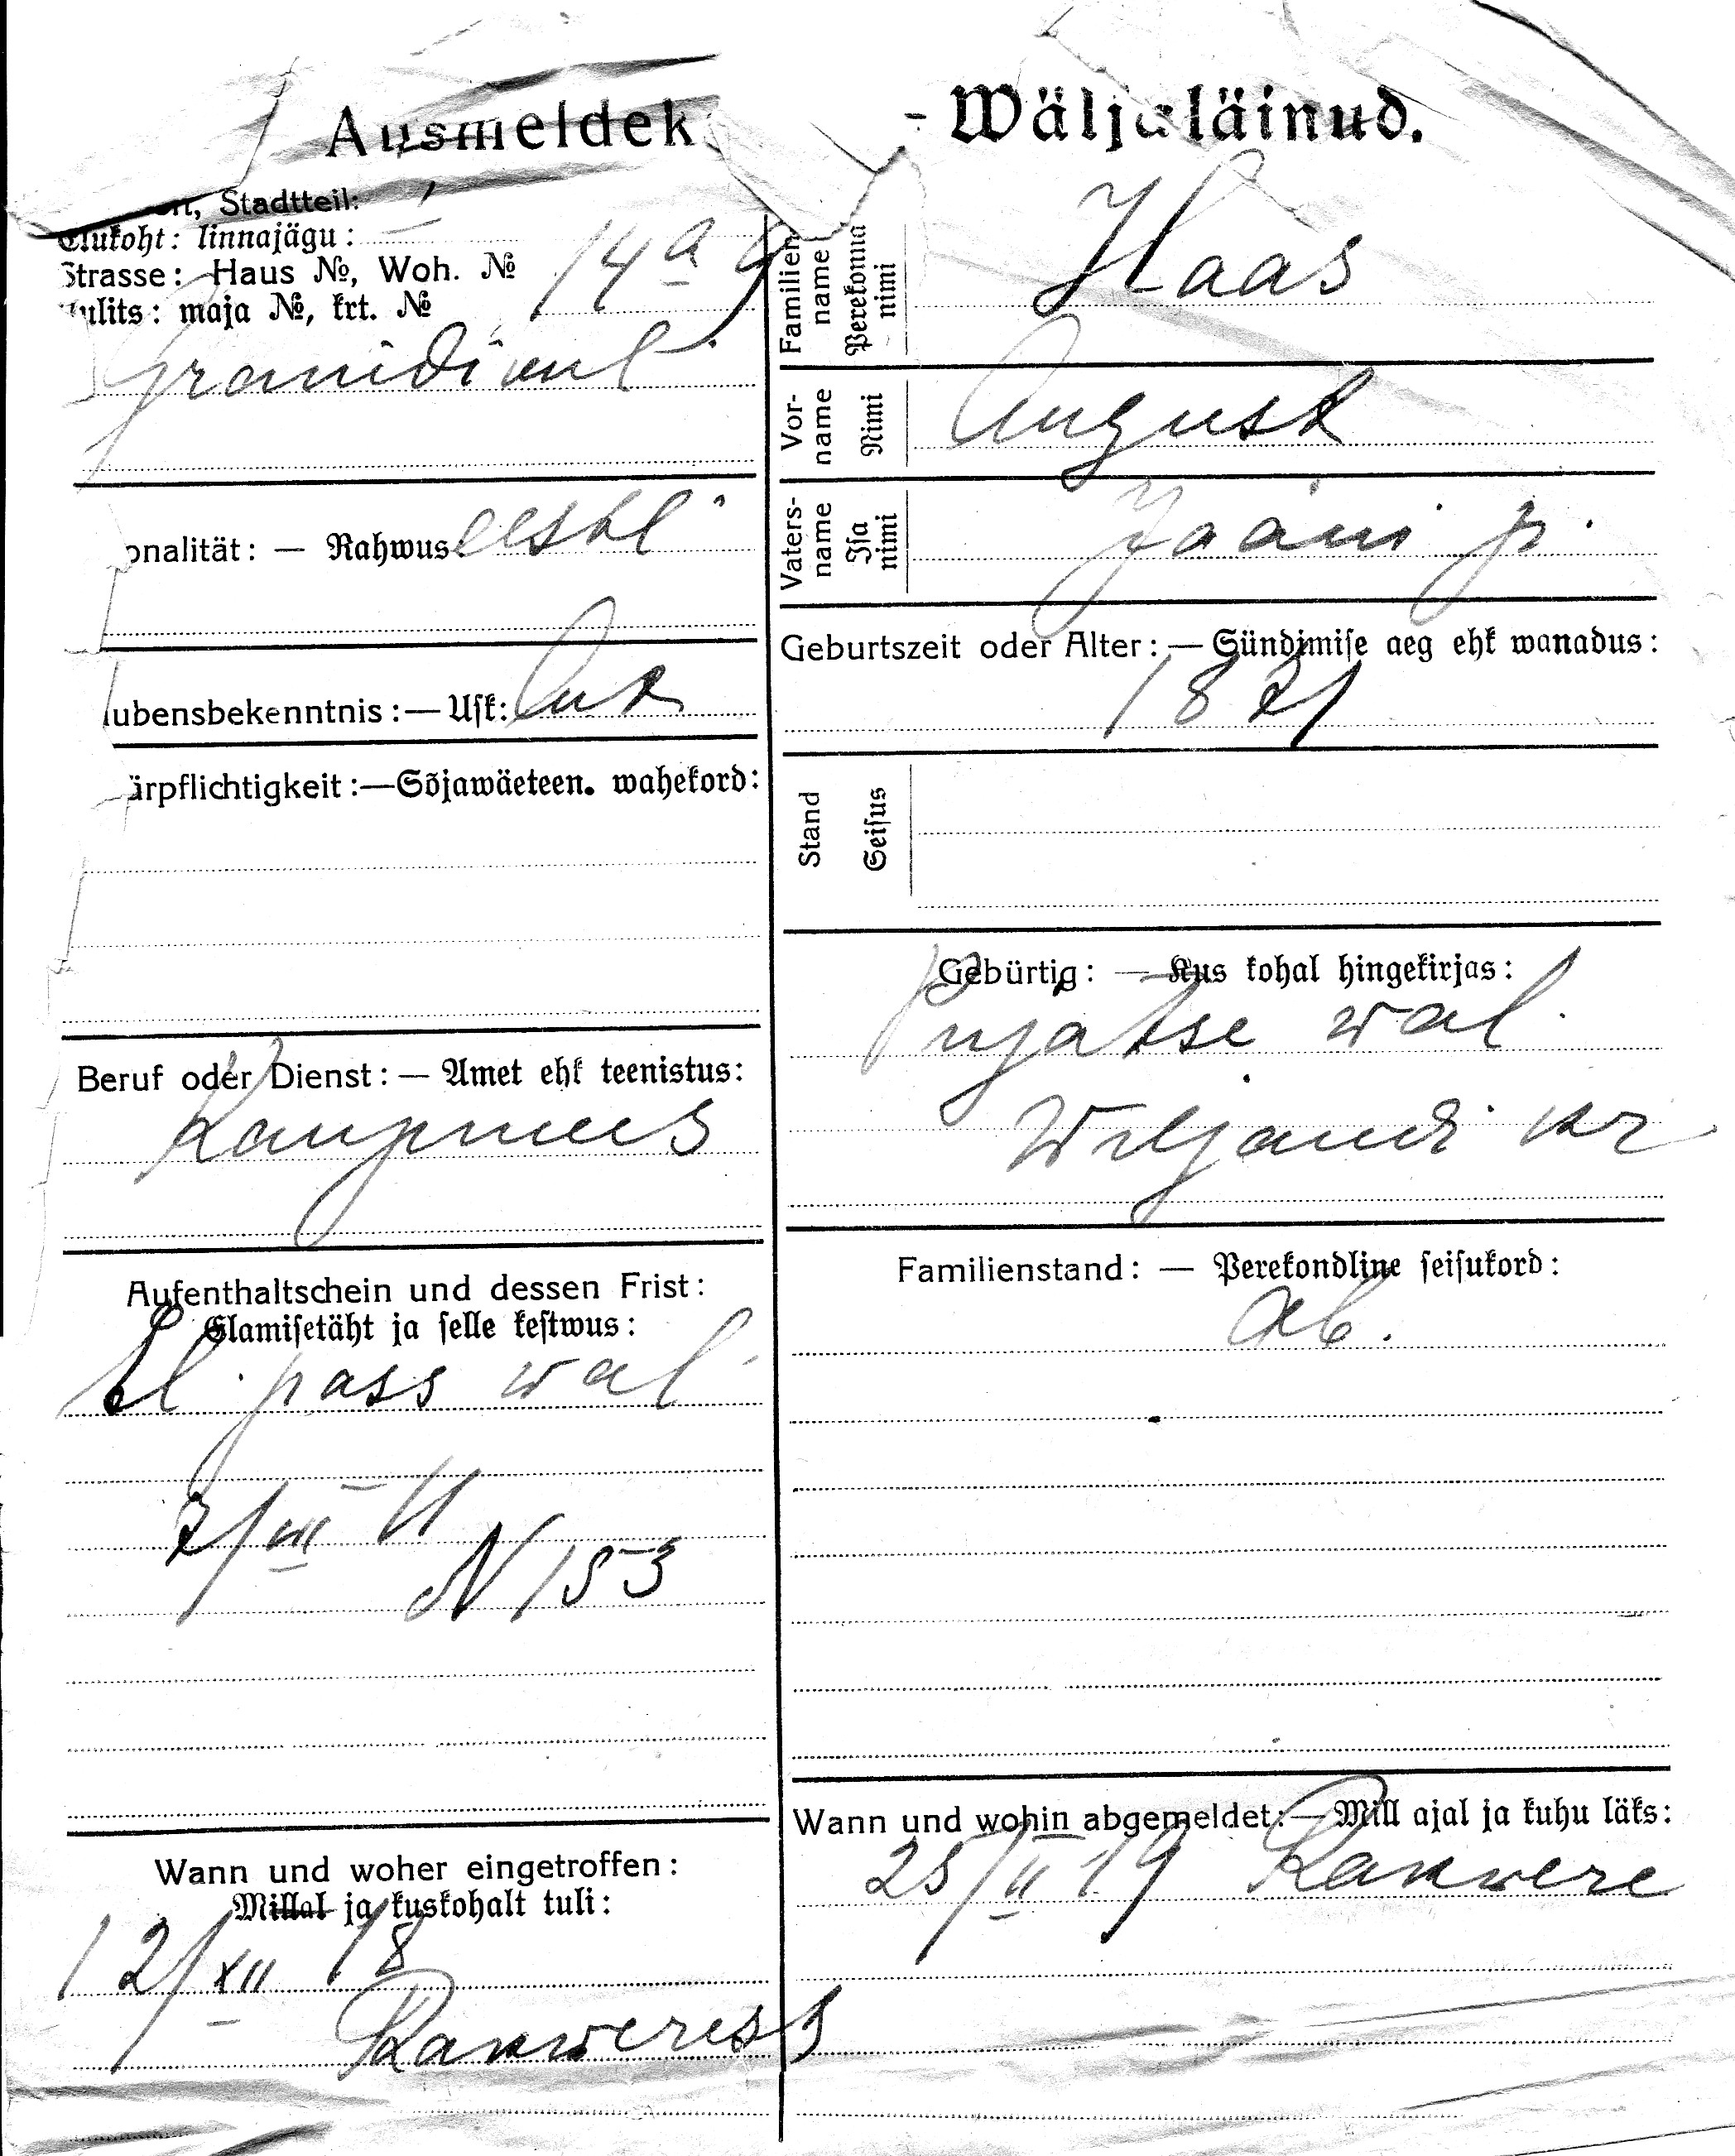 Ausmeldek - Wäljaläinud.
Stadtteil: I
Elukoht: linnajägu:
Strasse: Haus №, Woh. № 14 a 9
Uulits: maja №, krt. №
onalität: — Rahwus eestl.
ubensbekenntnis:— Usk: Lut
ärpflichtigkeit:—Sõjawäeteen. wahekord:
Beruf oder Dienst: — Amet ehk teenistus:
Kaupmees
Aufenthaltschein und dessen Frist:
Elamisetäht ja selle kestwus:
El. pass wal.
21/III 11
N 153
Wann und woher eingetroffen:
Millal ja kuskohalt tuli:
121/XII 18
Rakwerest
Familien
name
Perekonna
nimi
Haas
Vor-
name
Nimi
August
Vaters-
name
Isa
nimi
Jaani p.
Geburtszeit oder Alter: — Sündimise aeg ehk wanadus:
1871
Stand
Seisus
Gebürtig: — Kus kohal hingekirjas:
Pujatse wal.
Wiljandi kr
Familienstand: — Perekondline seisukord:
ab.
Wann und wohin abgemeldet:—Mill ajal ja kuhu läks:
25/II 19 Rakwere